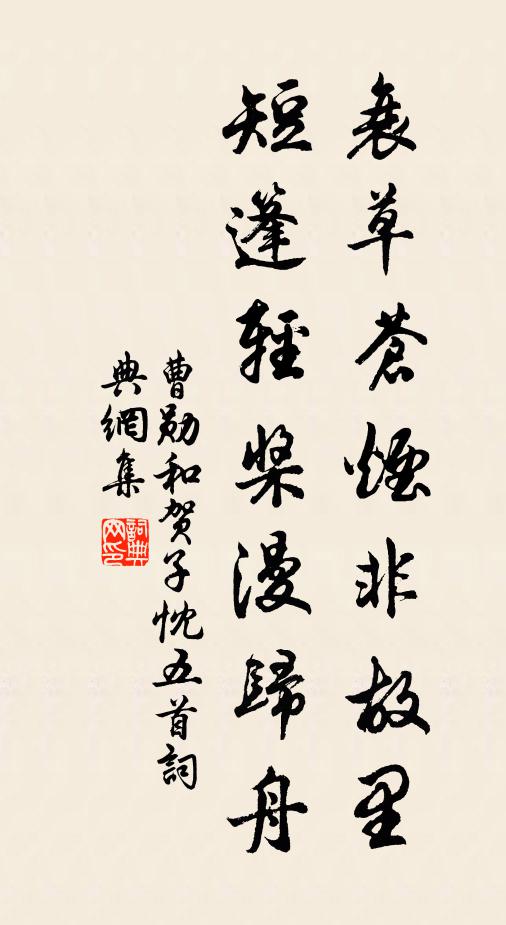 衰草蒼煙非故里
短蓬輕槳漫歸舟
曹勛和賀子忱五首詞
典網集
詞典
網印